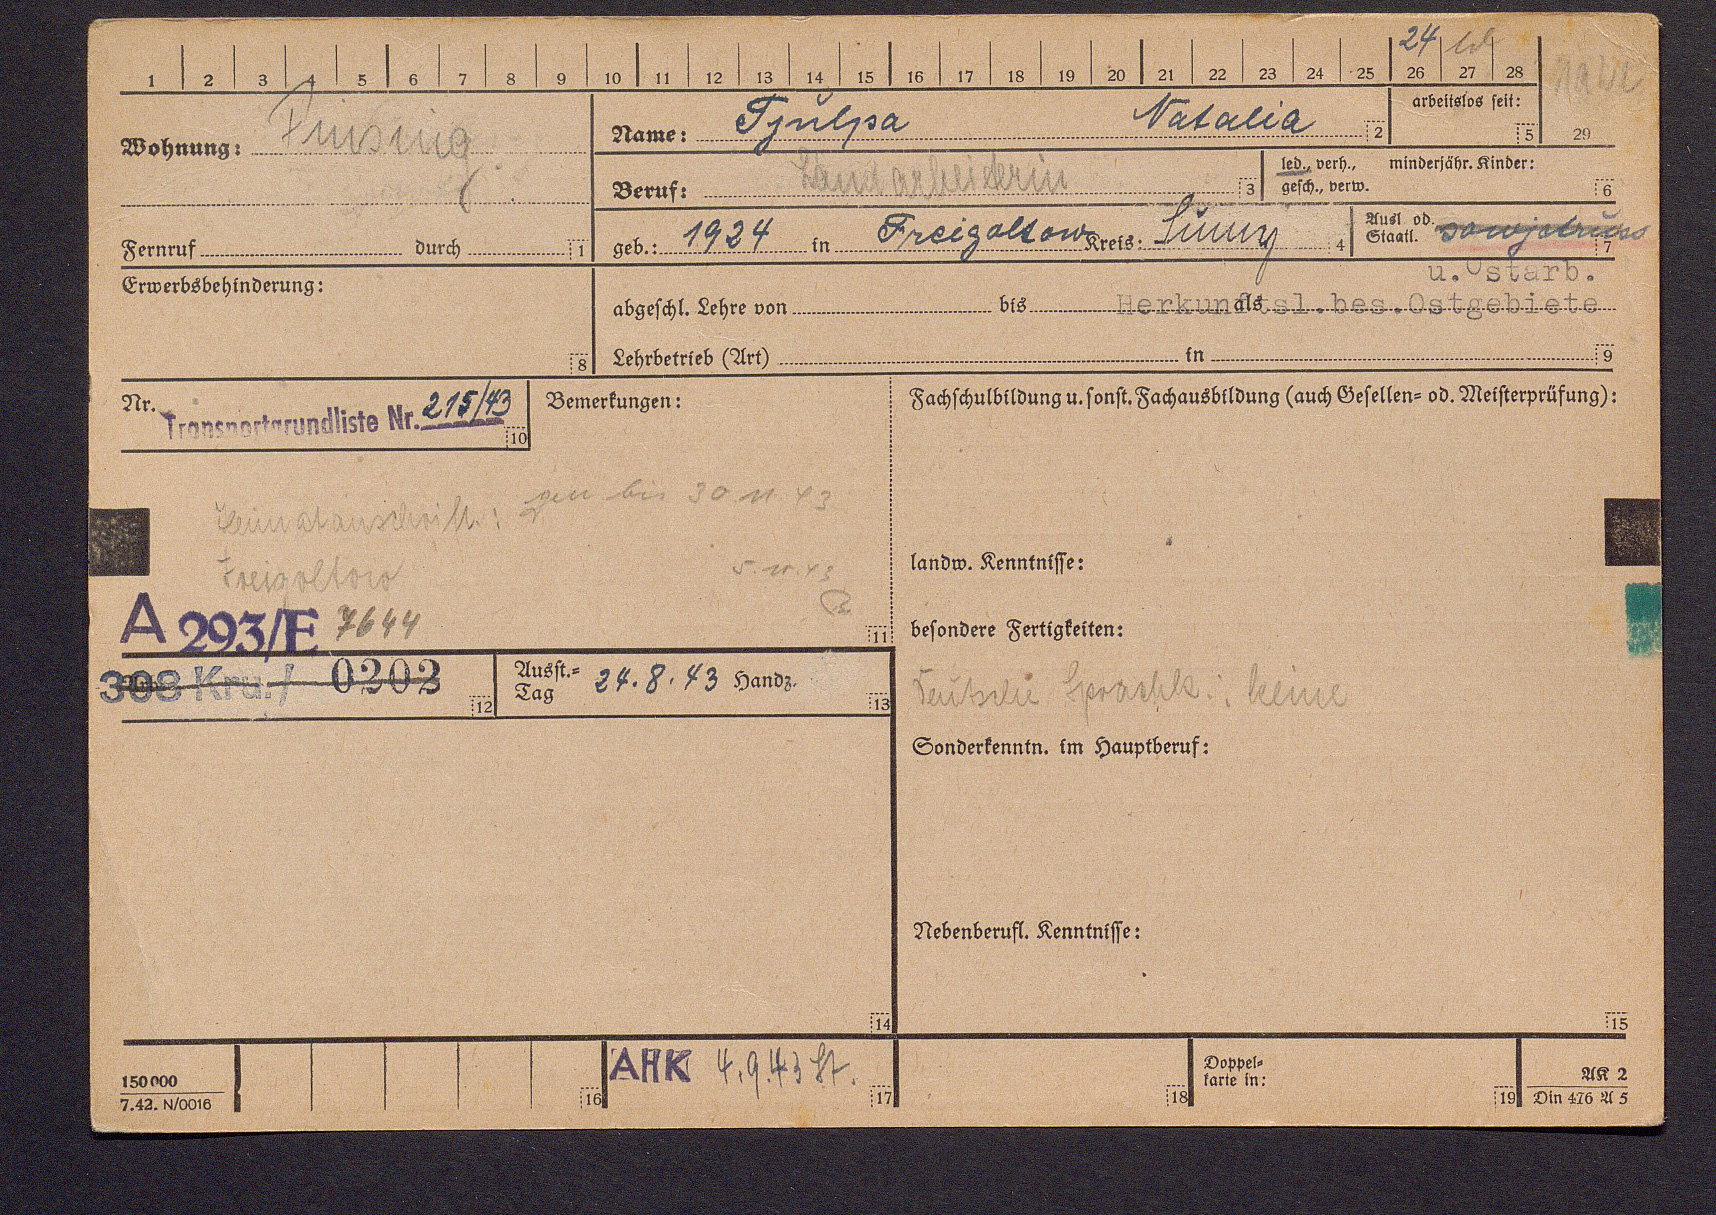 24 led
1 2 3 4 5 6 7 8 9 10 11 12 13 14 15 16 17 18 19 20 21 22 23 24 25 26 27 28
29
Wohnung:
Name: Tjulpa Natalia 2
arbeitslos seit: 5
Beruf: Landarbeiterin 3
led., verh., minderjähr. Kinder:
gesch., verw. 6
Fernruf durch 1
geb.: 1924 in Freigoltow Kreis: Sumy 4
Ausl od.
Staatl. sowjetruss 7
u. Ostarb.
Herkunftsl.bes.Ostgebiete
Erwerbsbehinderung: 8
abgeschl. Lehre von bis als
Lehrbetrieb (Art) in 9
Nr. Transportgrundliste Nr. 215/43 10
Bemerkungen:
Fachschulbildung u. sonst. Fachausbildung (auch Gesellen- od. Meisterprüfung):
gen bis 30 11 43
Heimatanschrift:
Freigoltow
5.11.43
A 293/E 7644 11
landw. Kenntnisse:
besondere Fertigkeiten:
308 Kru./ 0202 12
Ausst.-
Tag 24.8.43 Handz. 13
Deutsche Sprachk.: keine
Sonderkenntn. im Hauptberuf:
Nebenberufl. Kenntnisse:
14 15
150000
7.42. N/0016
16
AHK 4.9.43 St. 17
18
Doppel-
karte in: 19
AK 2
Din 476 A 5